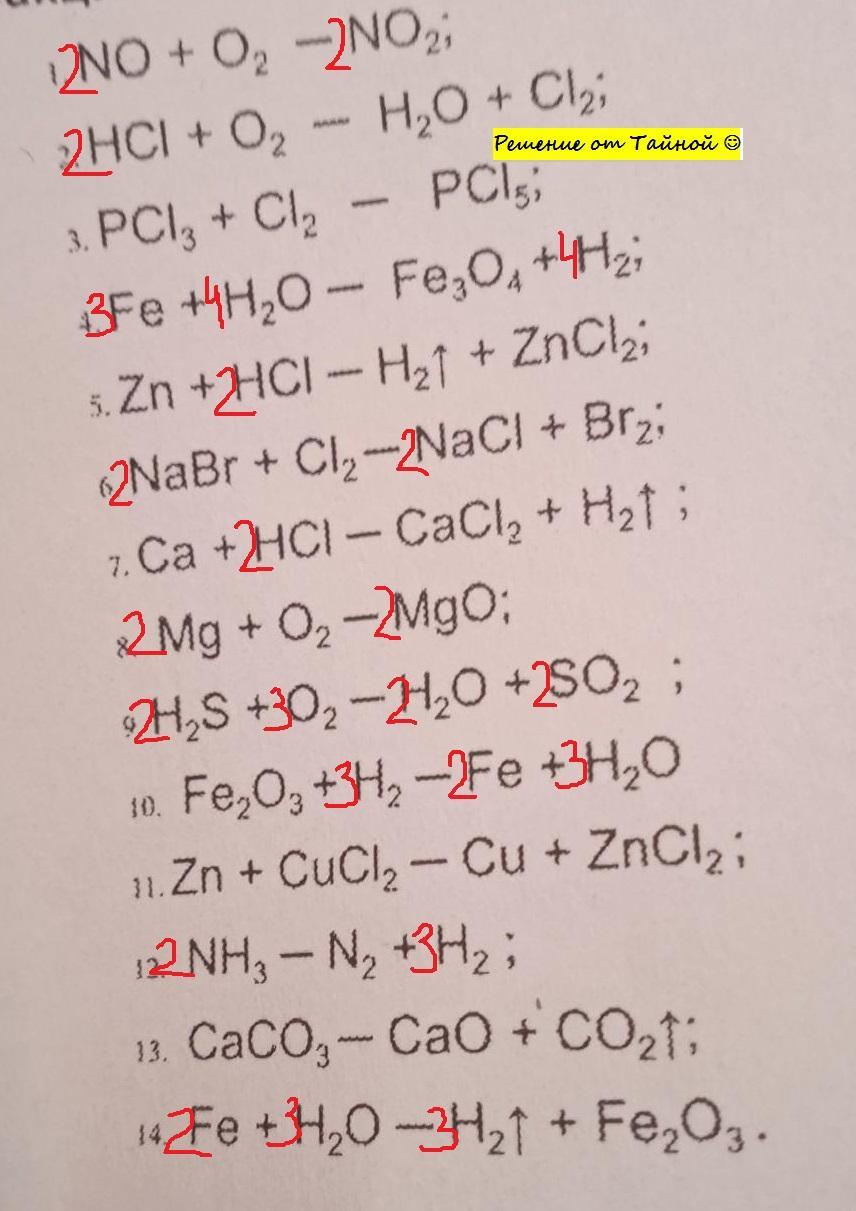 1. 2NO + O₂ — 2NO₂;
2. 2HCl + O₂ — H₂O + Cl₂;
Решение от Тайной ☺
3. PCl₃ + Cl₂ — PCl₅;
4. 3Fe + 4H₂O — Fe₃O₄ + 4H₂;
5. Zn + 2HCl — H₂↑ + ZnCl₂;
6. 2NaBr + Cl₂ — 2NaCl + Br₂;
7. Ca + 2HCl — CaCl₂ + H₂↑ ;
8. 2Mg + O₂ — 2MgO;
9. 2H₂S + 3O₂ — 2H₂O + 2SO₂ ;
10. Fe₂O₃ + 3H₂ — 2Fe + 3H₂O
11. Zn + CuCl₂ — Cu + ZnCl₂ ;
12. 2NH₃ — N₂ + 3H₂ ;
13. CaCO₃ — CaO + CO₂↑;
14. 2Fe + 3H₂O — 3H₂↑ + Fe₂O₃.